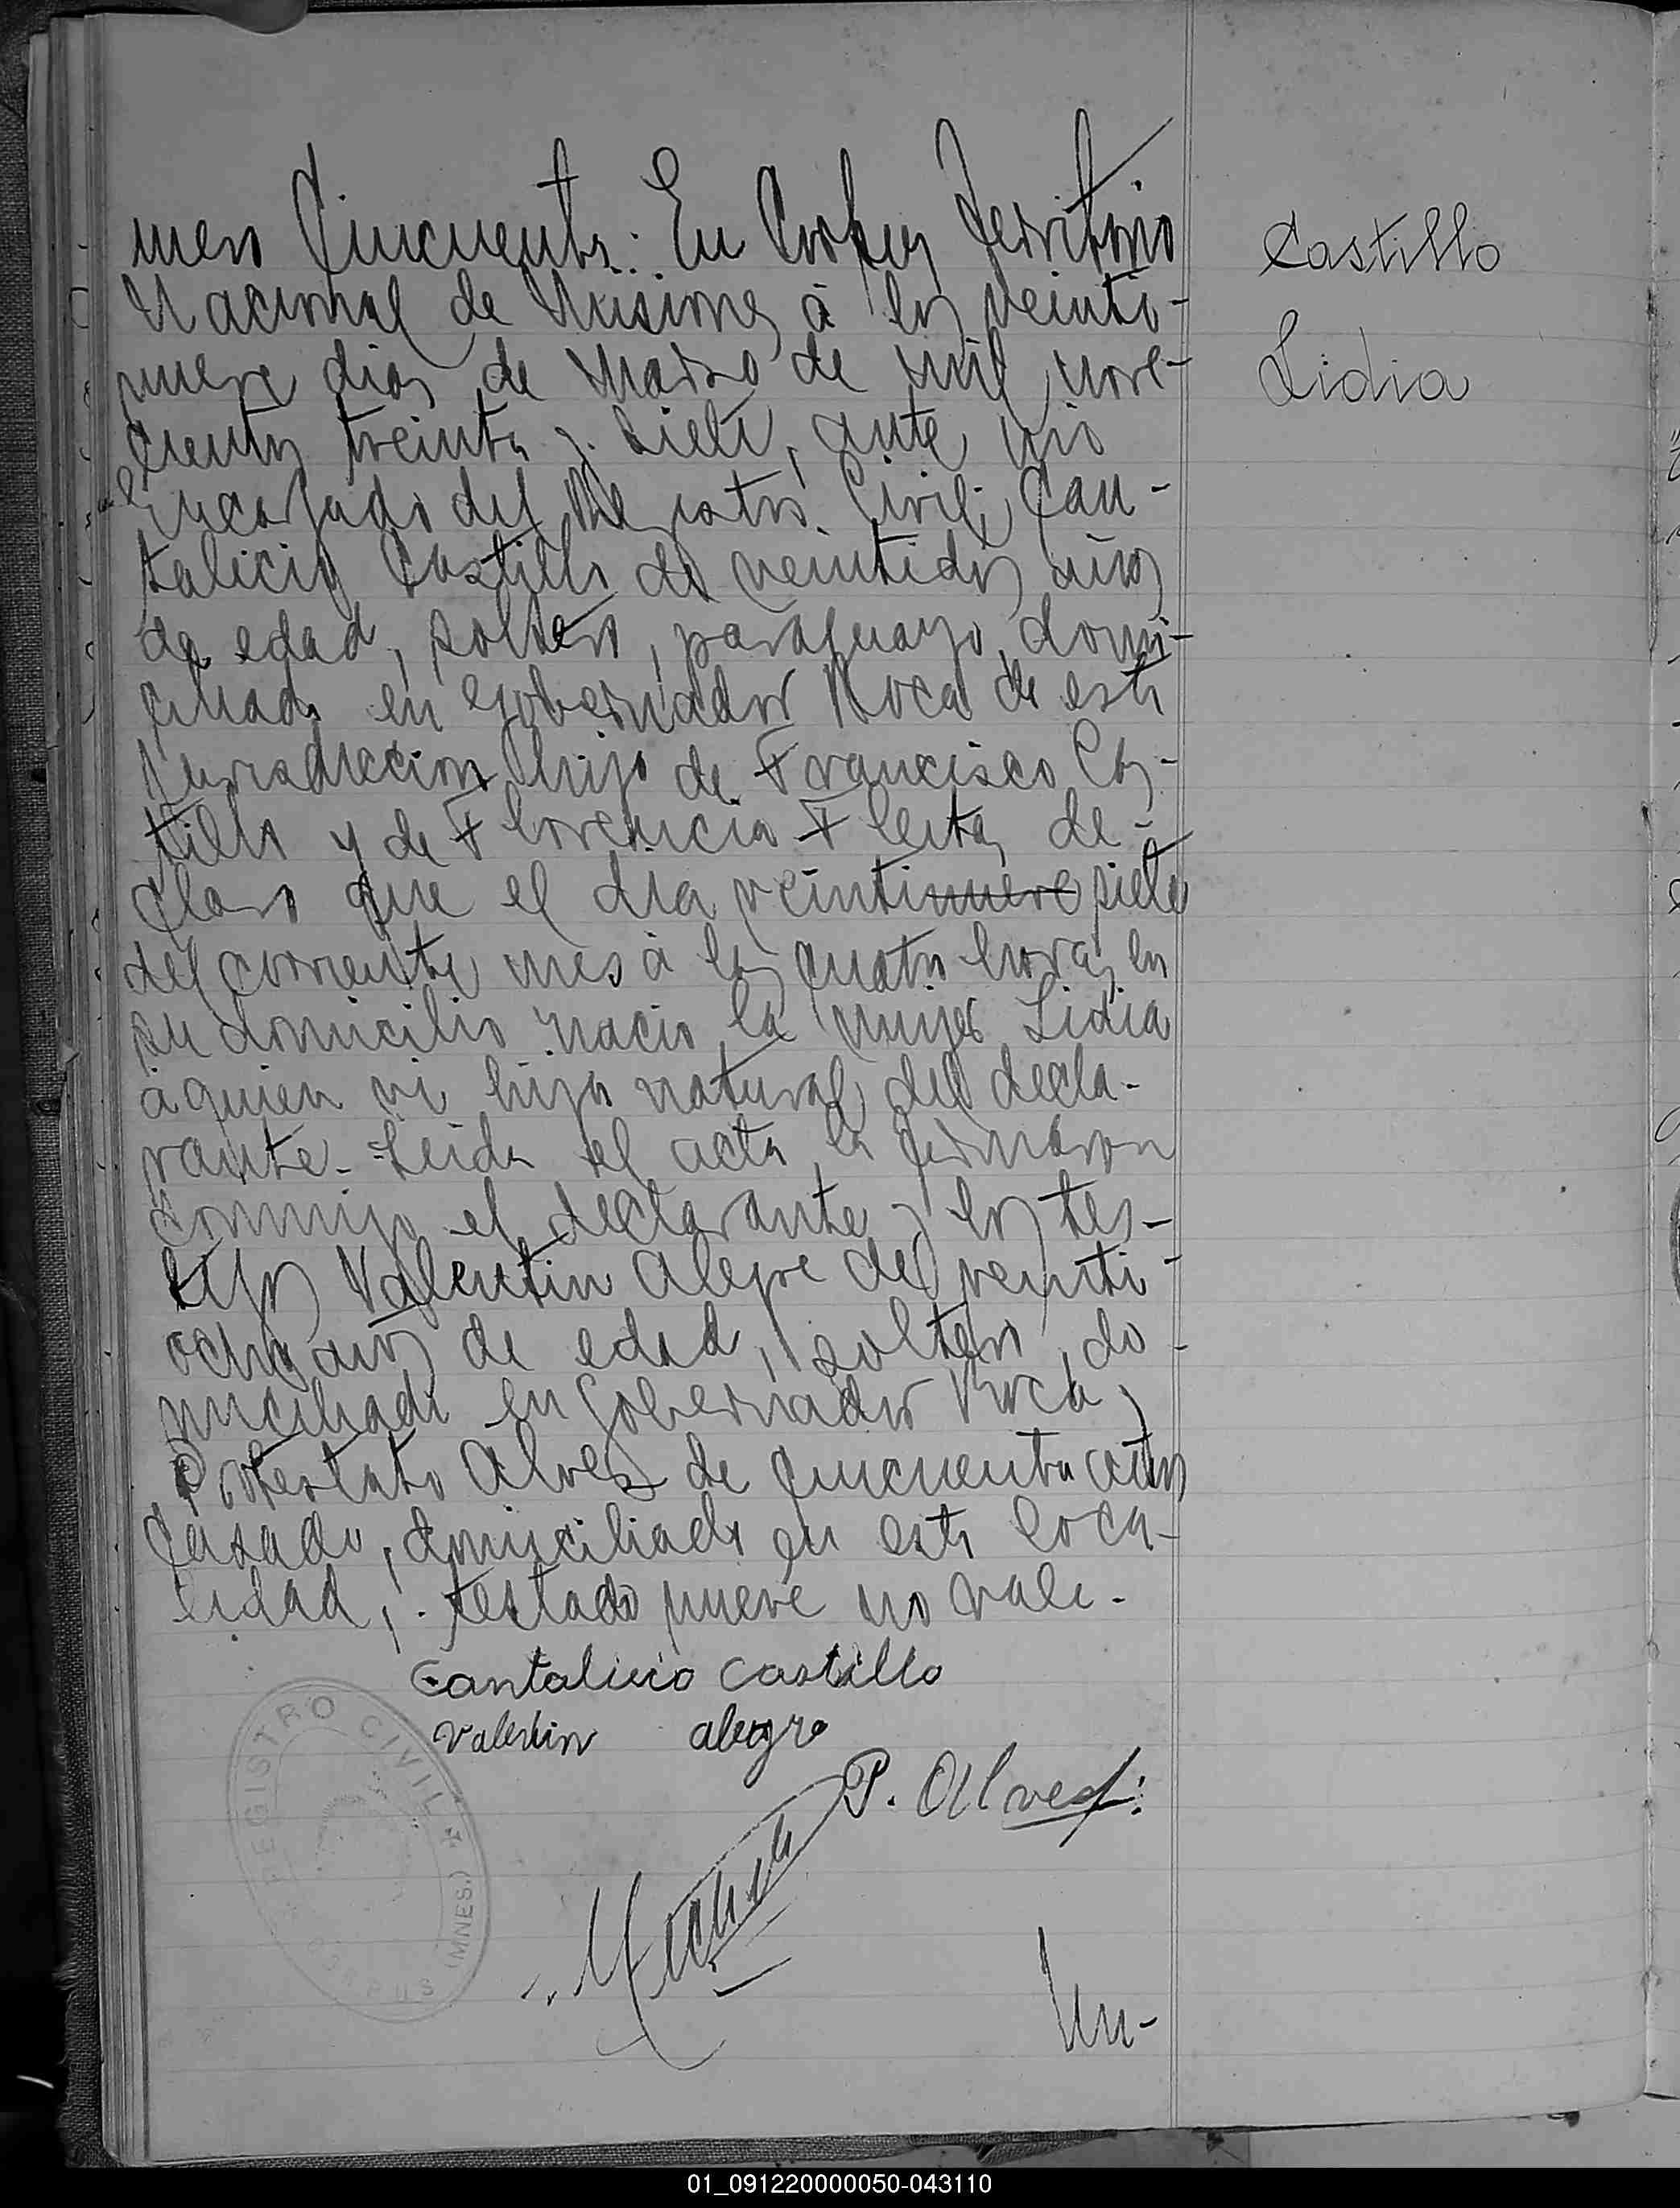 mero Cincuenta: En Corpus Territorio
Nacional de Misiones à los veinti-
nueve dias de Marzo de mil nove-
cientos treinta y siete, ante mi
Encargado del Registro Civil, Can-
talicio Castillo de veintidos años
de edad, soltero, paraguayo, domi-
ciliado en Gobernador Roca de esta
jurisdiccion hijo de Francisco Cas-
tillo y de Florencia Fleitas de-
claro que el dia veintinueve siete
del corriente mes à las cuatro horas en
su domicilio nacio la mujer Lidia
à quien vi hija natural del decla-
rante. Leida el acta la firmaron
conmigo el declarante y los tes-
tigos Valentin Alegre de veinti-
ocho años de edad, soltero, do-
miciliado en Gobernador Roca y
Alves de cincuenta años
casado, domiciliado en esta loca-
lidad, testado nueve no vale.
Cantalicio Castillo
Valentin alegre
P. Alves
Nu-
Castillo
Lidia
REGISTRO CIVIL
CORPUS (MNES.)
01_091220000050-043110